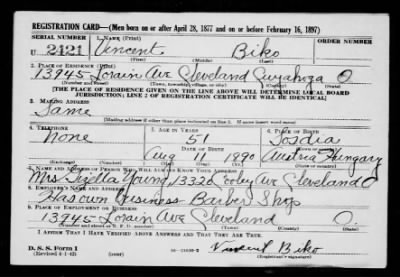 REGISTRATION CARD—(Men born on or after April 28, 1877 and on or before February 16, 1897)
SERIAL NUMBER 1. NAME (Print) ORDER NUMBER
U 2421 Vincent Biko
(First) (Middle) (Last)
2. PLACE OF RESIDENCE (Print)
13945 Lorain Ave Cleveland Cuyahoga O
(Number and street) (Town, township, village, or city) (County) (State)
[THE PLACE OF RESIDENCE GIVEN ON THE LINE ABOVE WILL DETERMINE LOCAL BOARD
JURISDICTION; LINE 2 OF REGISTRATION CERTIFICATE WILL BE IDENTICAL]
3. MAILING ADDRESS
Same
[Mailing address if other than place indicated on line 2. If same insert word same]
4. TELEPHONE 5. AGE IN YEARS 6. PLACE OF BIRTH
None 51
DATE OF BIRTH
Aug 11 1890 Austria Hungary
7. NAME AND ADDRESS OF PERSON WHO WILL ALWAYS KNOW YOUR ADDRESS
Mrs Young Ave Cleveland O
8. EMPLOYER'S NAME AND ADDRESS
Has own Business Barber Shop
9. PLACE OF EMPLOYMENT OR BUSINESS
13945 Lorain Ave Cleveland O.
(Number and street or R. F. D. number) (Town) (County) (State)
I AFFIRM THAT I HAVE VERIFIED ABOVE ANSWERS AND THAT THEY ARE TRUE.
D. S. S. Form 1
(Revised 4-1-42) Vincent Biko